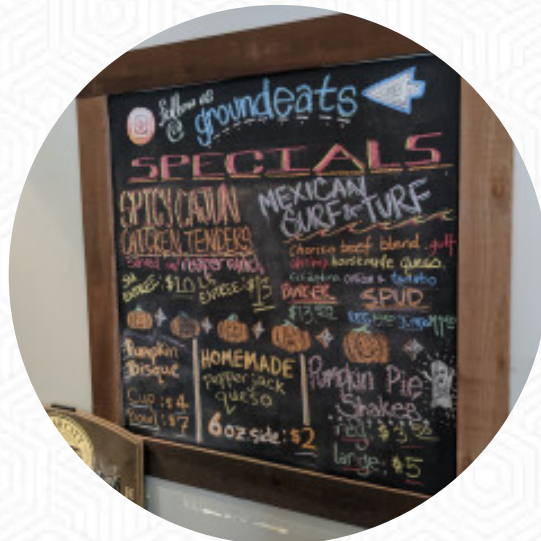 follow us
@
groundeats
SPECIALS
SPICY CAJUN
CHICKEN TENDERS
served w/ reaper ranch
SM
ENTREE: $10
LG
ENTREE: $13
MEXICAN
SURF & TURF
chorizo beef blend, gulf
shrimp homemade queso,
cilantro onion & tomato
BURGER
SPUD
Pumpkin
Bisque
Cup: $4
bowl: $7
HOMEMADE
pepper jack
queso
6oz side: $2
Pumpkin Pie
Shakes
reg: $3.50
large: $5